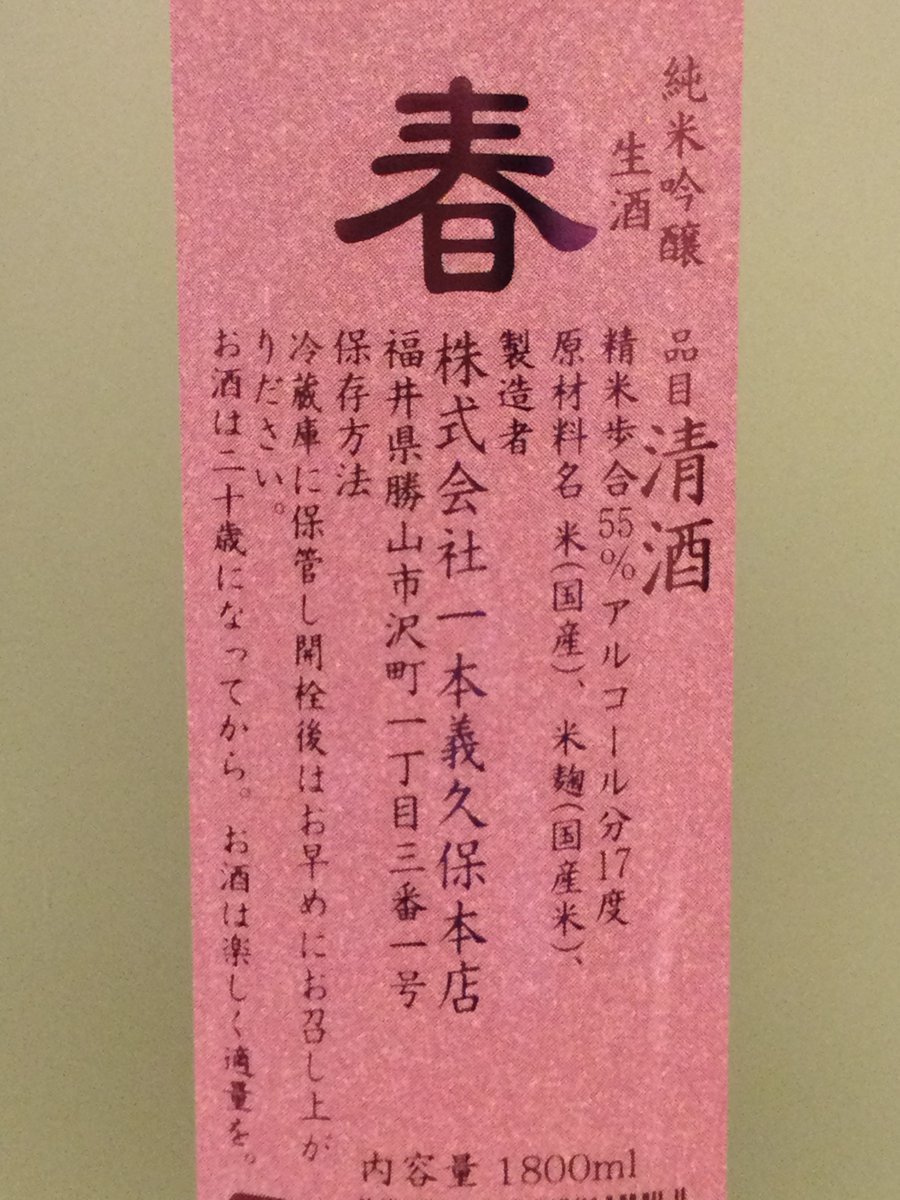 純米吟醸
生酒
春
品目 清酒
精米歩合55% アルコール分17度
原材料名 米(国産)、米麹(国産米)、
製造者
株式会社一本義久保本店
福井県勝山市沢町一丁目三番一号
保存方法
冷蔵庫に保管し開栓後はお早めにお召し上が
りださい。
お酒は二十歳になってから。お酒は楽しく適量を。
内容量 1800ml